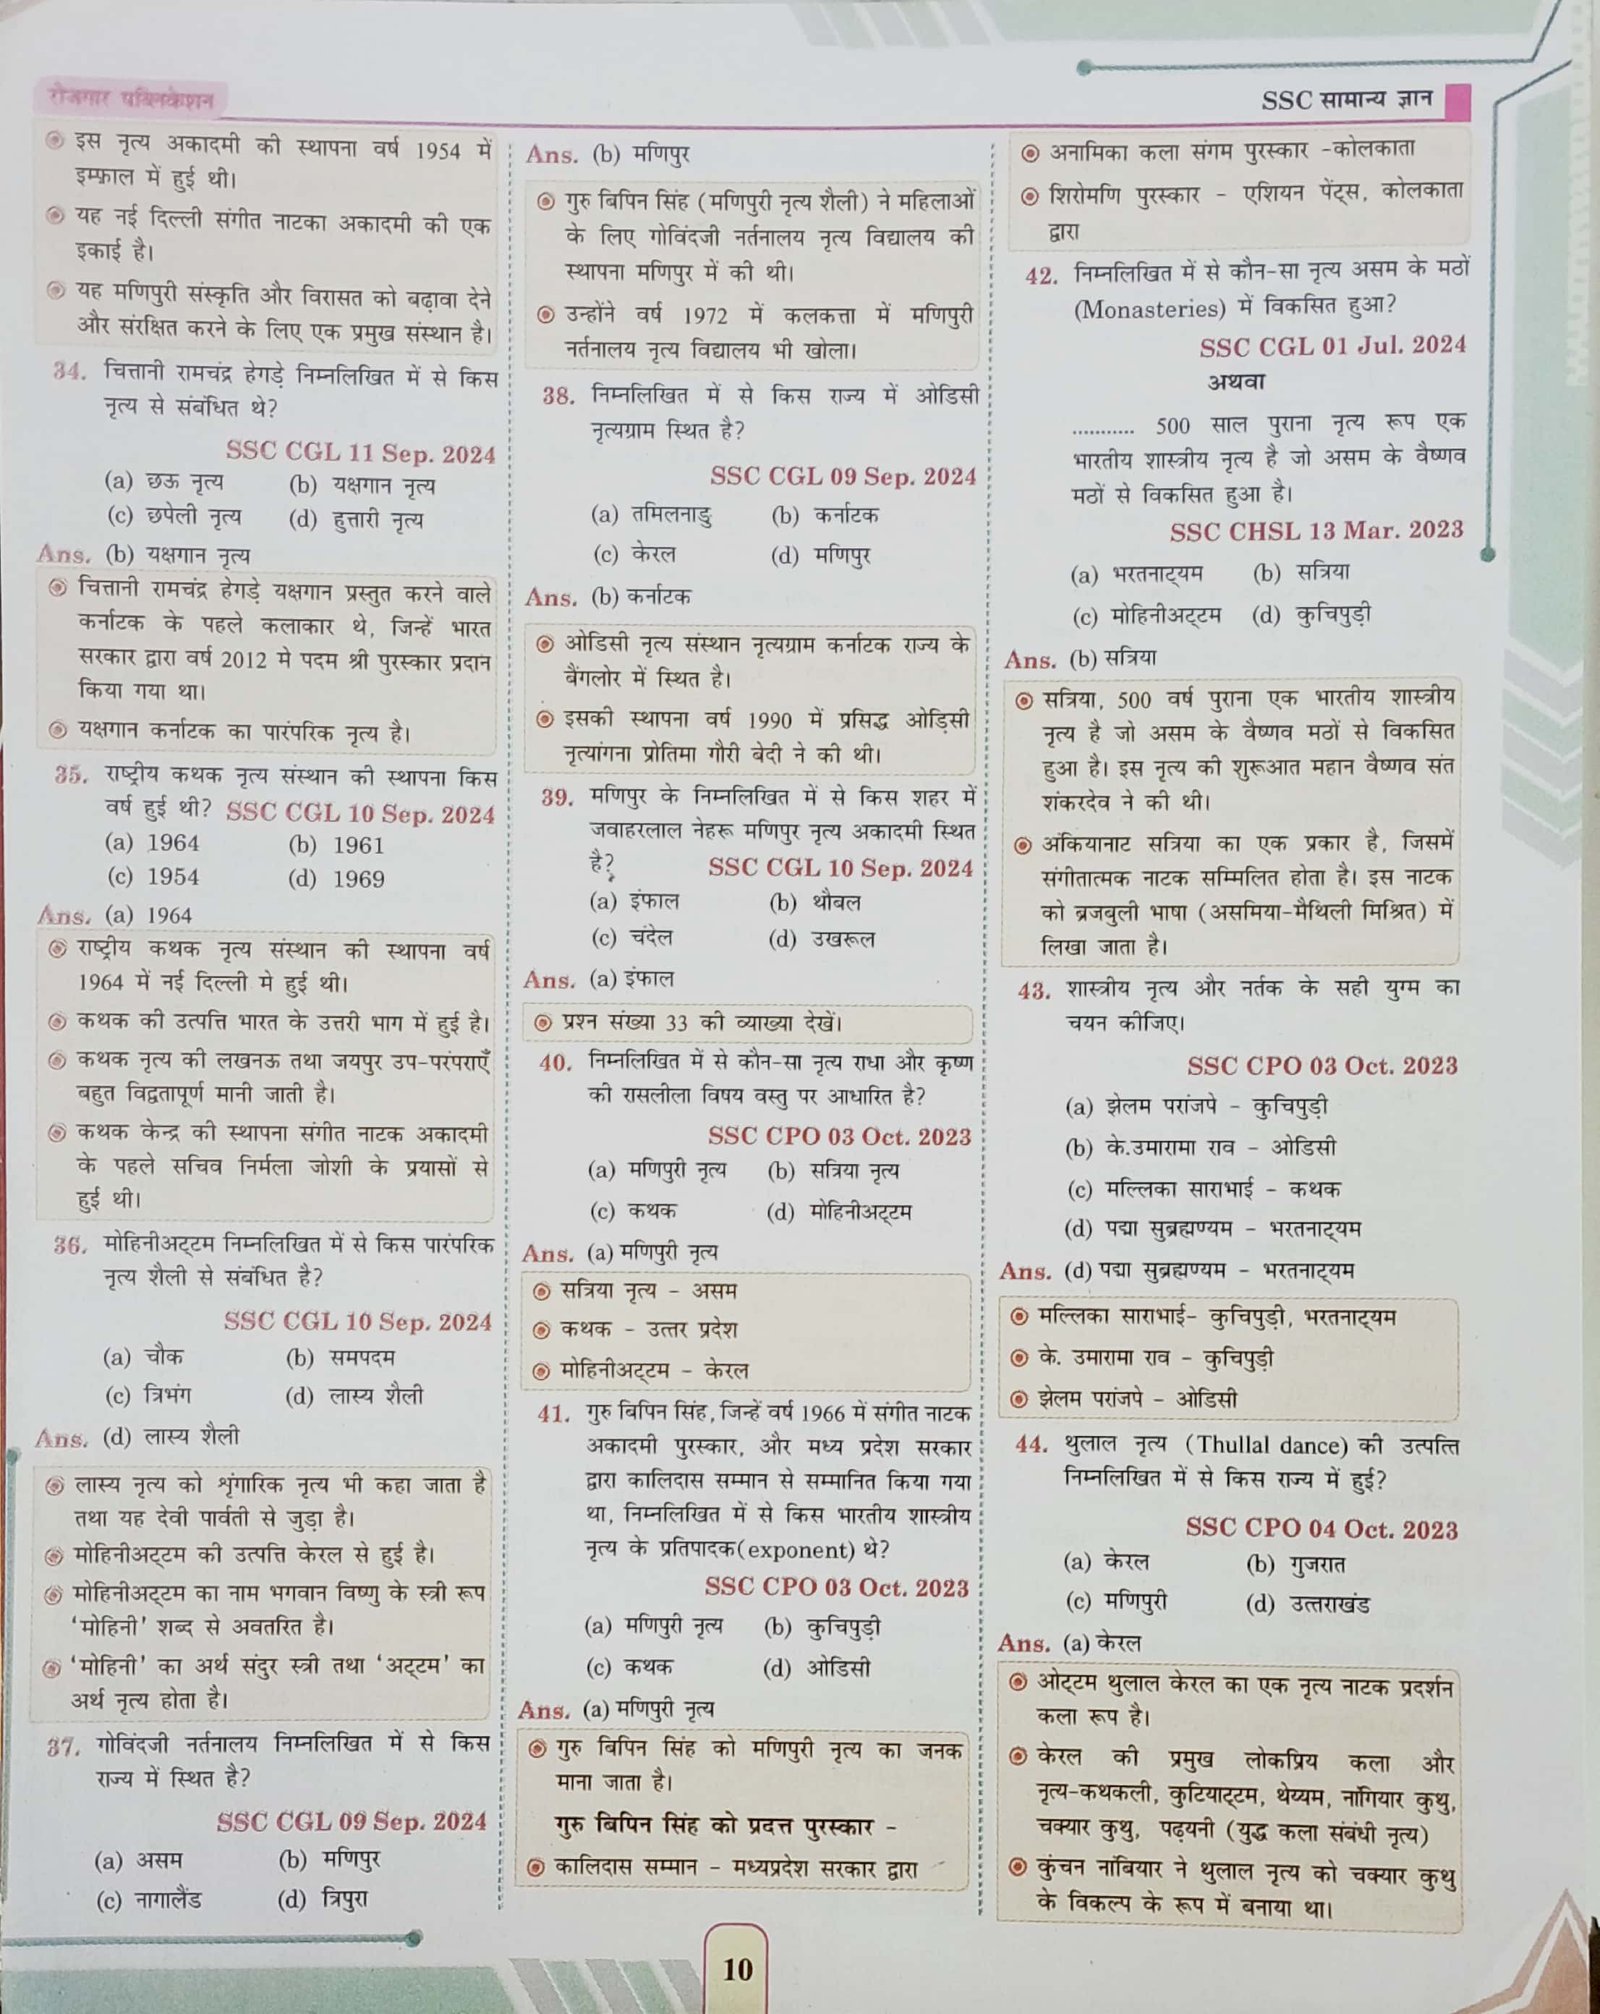 रोजगार पब्लिकेशन
SSC सामान्य ज्ञान
इस नृत्य अकादमी की स्थापना वर्ष 1954 में
इम्फाल में हुई थी।
यह नई दिल्ली संगीत नाटका अकादमी की एक
इकाई है।
यह मणिपुरी संस्कृति और विरासत को बढ़ावा देने
और संरक्षित करने के लिए एक प्रमुख संस्थान है।
34. चित्तानी रामचंद्र हेगड़े निम्नलिखित में से किस
नृत्य से संबंधित थे?
SSC CGL 11 Sep. 2024
(a) छऊ नृत्य (b) यक्षगान नृत्य
(c) छपेली नृत्य (d) हुत्तारी नृत्य
Ans. (b) यक्षगान नृत्य
चित्तानी रामचंद्र हेगड़े यक्षगान प्रस्तुत करने वाले
कर्नाटक के पहले कलाकार थे, जिन्हें भारत
सरकार द्वारा वर्ष 2012 मे पदम श्री पुरस्कार प्रदान
किया गया था।
यक्षगान कर्नाटक का पारंपरिक नृत्य है।
35. राष्ट्रीय कथक नृत्य संस्थान की स्थापना किस
वर्ष हुई थी? SSC CGL 10 Sep. 2024
(a) 1964 (b) 1961
(c) 1954 (d) 1969
Ans. (a) 1964
राष्ट्रीय कथक नृत्य संस्थान की स्थापना वर्ष
1964 में नई दिल्ली मे हुई थी।
कथक की उत्पत्ति भारत के उत्तरी भाग में हुई है।
कथक नृत्य की लखनऊ तथा जयपुर उप-परंपराएँ
बहुत विद्वतापूर्ण मानी जाती है।
कथक केन्द्र की स्थापना संगीत नाटक अकादमी
के पहले सचिव निर्मला जोशी के प्रयासों से
हुई थी।
36. मोहिनीअट्टम निम्नलिखित में से किस पारंपरिक
नृत्य शैली से संबंधित है?
SSC CGL 10 Sep. 2024
(a) चौक (b) समपदम
(c) त्रिभंग (d) लास्य शैली
Ans. (d) लास्य शैली
लास्य नृत्य को श्रृंगारिक नृत्य भी कहा जाता है
तथा यह देवी पार्वती से जुड़ा है।
मोहिनीअट्टम की उत्पत्ति केरल से हुई है।
मोहिनीअट्टम का नाम भगवान विष्णु के स्त्री रूप
‘मोहिनी’ शब्द से अवतरित है।
‘मोहिनी’ का अर्थ संदुर स्त्री तथा ‘अट्टम’ का
अर्थ नृत्य होता है।
37. गोविंदजी नर्तनालय निम्नलिखित में से किस
राज्य में स्थित है?
SSC CGL 09 Sep. 2024
(a) असम (b) मणिपुर
(c) नागालैंड (d) त्रिपुरा
Ans. (b) मणिपुर
गुरु बिपिन सिंह (मणिपुरी नृत्य शैली) ने महिलाओं
के लिए गोविंदजी नर्तनालय नृत्य विद्यालय की
स्थापना मणिपुर में की थी।
उन्होंने वर्ष 1972 में कलकत्ता में मणिपुरी
नर्तनालय नृत्य विद्यालय भी खोला।
38. निम्नलिखित में से किस राज्य में ओडिसी
नृत्यग्राम स्थित है?
SSC CGL 09 Sep. 2024
(a) तमिलनाडु (b) कर्नाटक
(c) केरल (d) मणिपुर
Ans. (b) कर्नाटक
ओडिसी नृत्य संस्थान नृत्यग्राम कर्नाटक राज्य के
बैंगलोर में स्थित है।
इसकी स्थापना वर्ष 1990 में प्रसिद्ध ओड़िसी
नृत्यांगना प्रोतिमा गौरी बेदी ने की थी।
39. मणिपुर के निम्नलिखित में से किस शहर में
जवाहरलाल नेहरू मणिपुर नृत्य अकादमी स्थित
है? SSC CGL 10 Sep. 2024
(a) इंफाल (b) थौबल
(c) चंदेल (d) उखरूल
Ans. (a) इंफाल
प्रश्न संख्या 33 की व्याख्या देखें।
40. निम्नलिखित में से कौन-सा नृत्य राधा और कृष्ण
की रासलीला विषय वस्तु पर आधारित है?
SSC CPO 03 Oct. 2023
(a) मणिपुरी नृत्य (b) सत्रिया नृत्य
(c) कथक (d) मोहिनीअट्टम
Ans. (a) मणिपुरी नृत्य
सत्रिया नृत्य - असम
कथक - उत्तर प्रदेश
मोहिनीअट्टम - केरल
41. गुरु बिपिन सिंह, जिन्हें वर्ष 1966 में संगीत नाटक
अकादमी पुरस्कार, और मध्य प्रदेश सरकार
द्वारा कालिदास सम्मान से सम्मानित किया गया
था, निम्नलिखित में से किस भारतीय शास्त्रीय
नृत्य के प्रतिपादक(exponent) थे?
SSC CPO 03 Oct. 2023
(a) मणिपुरी नृत्य (b) कुचिपुड़ी
(c) कथक (d) ओडिसी
Ans. (a) मणिपुरी नृत्य
गुरु बिपिन सिंह को मणिपुरी नृत्य का जनक
माना जाता है।
गुरु बिपिन सिंह को प्रदत्त पुरस्कार -
कालिदास सम्मान - मध्यप्रदेश सरकार द्वारा
अनामिका कला संगम पुरस्कार -कोलकाता
शिरोमणि पुरस्कार - एशियन पेंट्स, कोलकाता
द्वारा
42. निम्नलिखित में से कौन-सा नृत्य असम के मठों
(Monasteries) में विकसित हुआ?
SSC CGL 01 Jul. 2024
अथवा
........... 500 साल पुराना नृत्य रूप एक
भारतीय शास्त्रीय नृत्य है जो असम के वैष्णव
मठों से विकसित हुआ है।
SSC CHSL 13 Mar. 2023
(a) भरतनाट्यम (b) सत्रिया
(c) मोहिनीअट्टम (d) कुचिपुड़ी
Ans. (b) सत्रिया
सत्रिया, 500 वर्ष पुराना एक भारतीय शास्त्रीय
नृत्य है जो असम के वैष्णव मठों से विकसित
हुआ है। इस नृत्य की शुरूआत महान वैष्णव संत
शंकरदेव ने की थी।
अंकियानाट सत्रिया का एक प्रकार है, जिसमें
संगीतात्मक नाटक सम्मिलित होता है। इस नाटक
को ब्रजबुली भाषा (असमिया-मैथिली मिश्रित) में
लिखा जाता है।
43. शास्त्रीय नृत्य और नर्तक के सही युग्म का
चयन कीजिए।
SSC CPO 03 Oct. 2023
(a) झेलम परांजपे - कुचिपुड़ी
(b) के.उमारामा राव - ओडिसी
(c) मल्लिका साराभाई - कथक
(d) पद्मा सुब्रह्मण्यम - भरतनाट्यम
Ans. (d) पद्मा सुब्रह्मण्यम - भरतनाट्यम
मल्लिका साराभाई- कुचिपुड़ी, भरतनाट्यम
के. उमारामा राव - कुचिपुड़ी
झेलम परांजपे - ओडिसी
44. थुलाल नृत्य (Thullal dance) की उत्पत्ति
निम्नलिखित में से किस राज्य में हुई?
SSC CPO 04 Oct. 2023
(a) केरल (b) गुजरात
(c) मणिपुरी (d) उत्तराखंड
Ans. (a) केरल
ओट्टम थुलाल केरल का एक नृत्य नाटक प्रदर्शन
कला रूप है।
केरल की प्रमुख लोकप्रिय कला और
नृत्य-कथकली, कुटियाट्टम, थेय्यम, नांगियार कुथु,
चक्यार कुथु, पढ़यनी (युद्ध कला संबंधी नृत्य)
कुंचन नांबियार ने थुलाल नृत्य को चक्यार कुथु
के विकल्प के रूप में बनाया था।
10